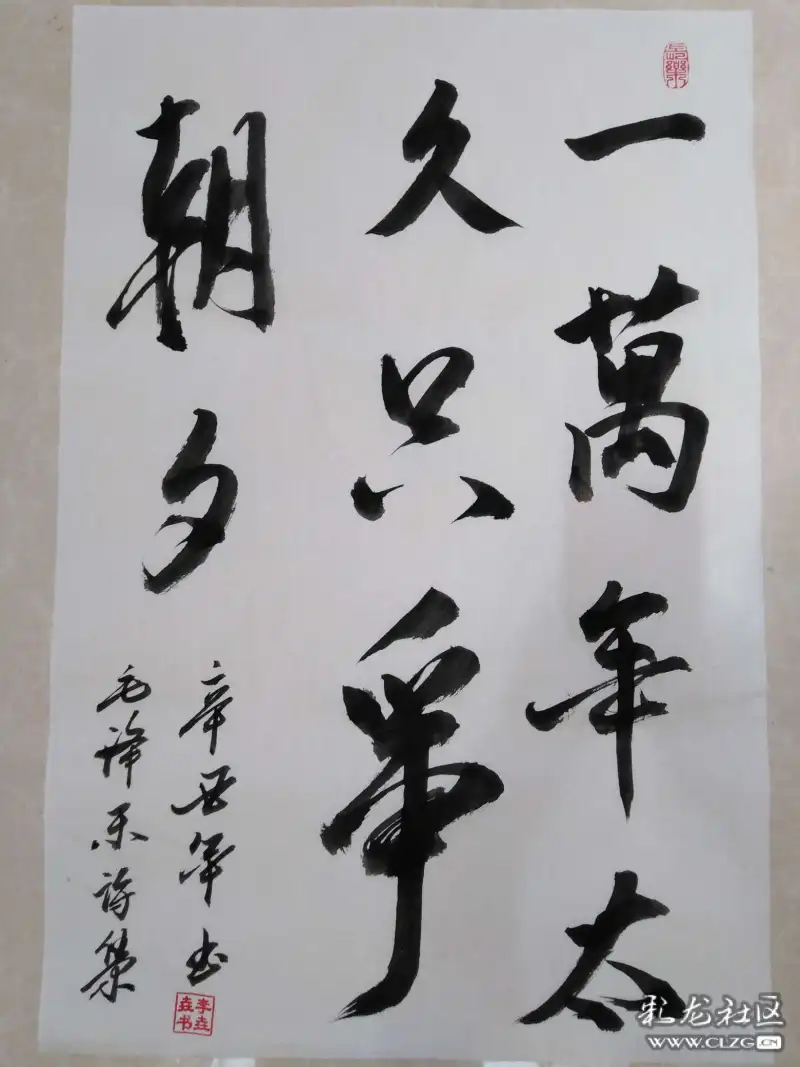 一萬年太
久只爭
朝夕
辛丑年书
毛泽东诗集
長樂
李垚
垚书
彩龙社区
WWW.CLZG.CN